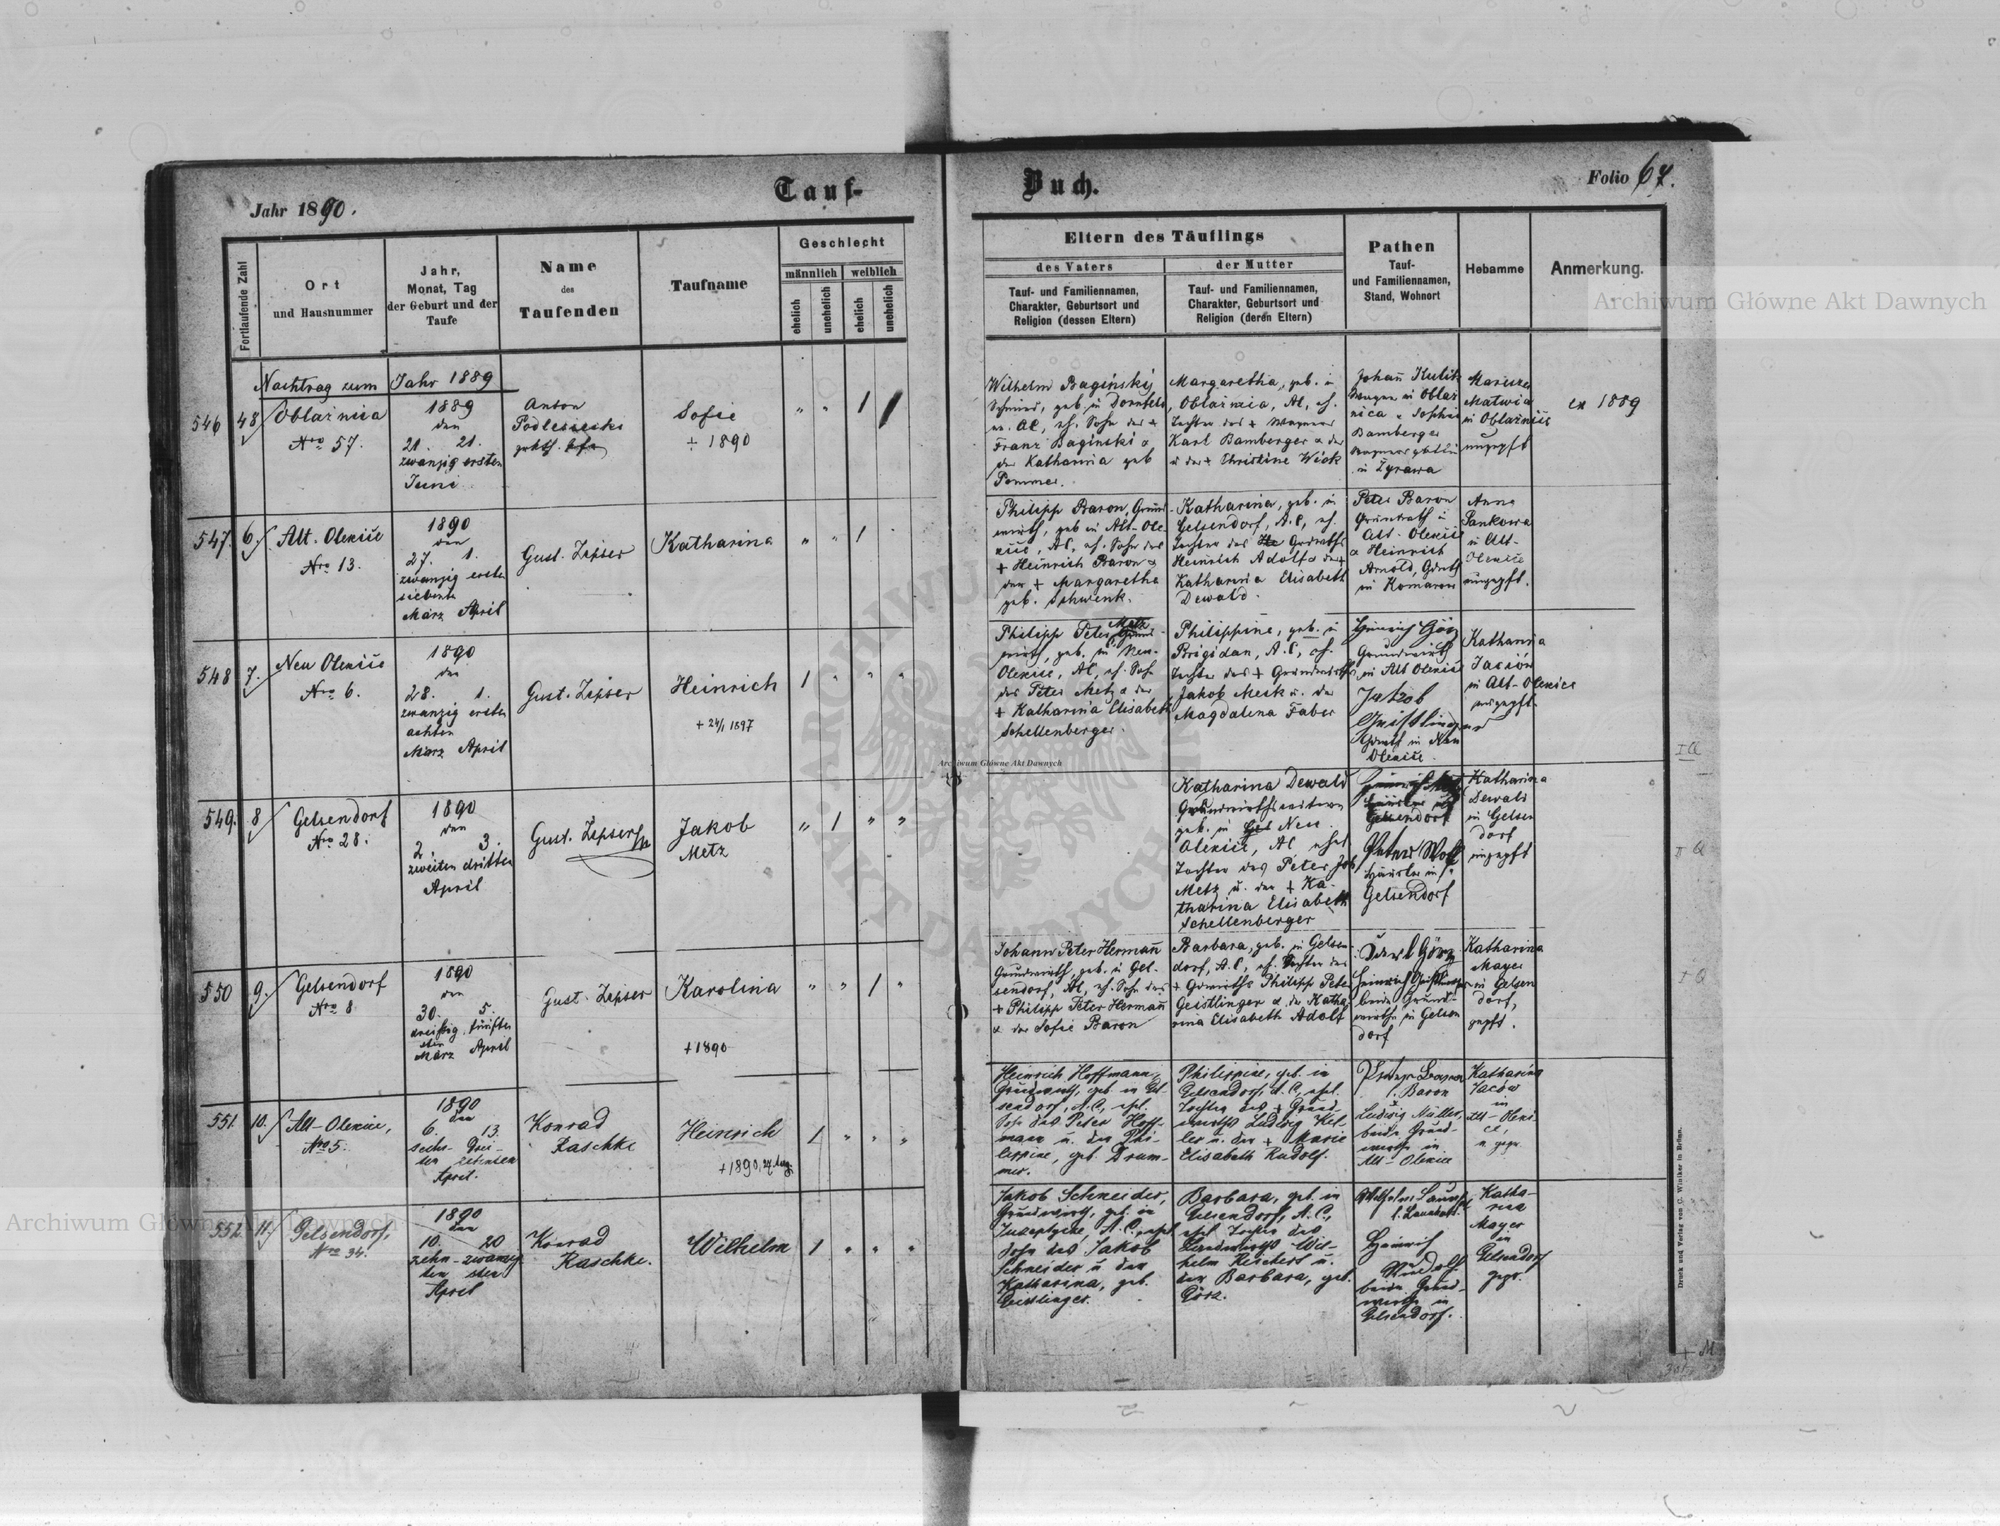 Jahr 1890.
Tauf-
Buch.
Folio 67.
Fortlaufende Zahl
Ort
und Hausnummer
Jahr,
Monat, Tag
der Geburt und der
Taufe
Name
des
Taufenden
Taufname
Geschlecht
männlich
weiblich
ehelich
unehelich
ehelich
unehelich
Eltern des Täuflings
des Vaters
Tauf- und Familiennamen,
Charakter, Geburtsort und
Religion (dessen Eltern)
der Mutter
Tauf- und Familiennamen,
Charakter, Geburtsort und
Religion (deren Eltern)
Pathen
Tauf-
und Familiennamen,
Stand, Wohnort
Hebamme
Anmerkung.
Nachtrag zum Jahr 1889
546 43
Oblaźnica
Nro 57.
1889
den
21. 21.
zwanzig ersten
Juni
Anton
Podlesiecki
Sofie
+ 1890
" " 1
Wilhelm Bagiński
Schmied, geb. in Dornfeld
Franz Baginski &
der Katharina geb
Pommer.
Margaretha, geb. in
Oblaźnica, AC, eh.
Tochter des + Wagner
Karl Bamberger &
der + Christine Wick
Johann Kulik
Wagner in Oblaź
nica & Sophie
Bamberger
in Żyrawa
Matwia
in Oblaźnica
ungepft
ex 1889
547. 6.
Alt-Olexice
Nro 13.
1890
den
27. 1.
zwanzig ersten
siebente
März April
Gust. Zipser
Katharina
" " 1
Philipp Baron, Grund
wirth, geb in Alt-Ole
xice, AC, eh. Sohn des
+ Heinrich Baron &
der + Margaretha
geb. Schwenk.
Katharina, geb. in
Gelsendorf, A.C, eh.
Tochter des Grdwirths
Heinrich Adolf & der +
Katharina Elisabeth
Dewald.
Peter Baron
Grundwirth in
Alt-Olexice
& Heinrich
Arnold, Gdwth
in Komarow
Anna
Jankowa
in Alt-
Olexice
ungepft.
548 7.
Neu Olexice
Nro 6.
1890
den
28. 1.
zwanzig ersten
achten
März April
Gust. Zipser
Heinrich
+ 24/1 1897
1 " " "
Philipp Peter Metz
Grund-
wirth, geb. in Neu-
Olexice, AC, eh. Sohn
des Peter Metz & der
+ Katharina Elisabeth
Schellenberger.
Philippine, geb. in
Brigidau, A.C, eh.
Tochter des + Grundwirths
Jakob Merk u. der
Magdalena Faber
Heinrich Görz
Grundwirth
in Alt Olexice
Jakob
Geistlinger
Grdwth in Neu
Olexice.
Katharina
in Alt-Olexice
ungepft.
549. 8
Gelsendorf
Nro 28.
1890
den
2. 3.
zweiten dritten
April
Gust. Zipser
Jakob
Metz
" 1 " "
Katharina Dewald
Grundwirthswitwe
geb. in Neu
Olexice, AC ehel
Tochter des Peter Jak
Metz u. der + Ka-
tharina Elisabeth
Schellenberger
Gelsendorf
Peter Wolf
Häusler in
Gelsendorf
Katharina
Dewald
in Gelsen
dorf
ungepft
550 9.
Gelsendorf
Nro 8.
1890
den
30. 5.
dreißig fünften
sten
März April
Gust. Zipser
Karolina
+ 1890
" " 1 "
Johann Peter Hermañ
Grundwirth, geb. in Gel-
sendorf, AC, eh. Sohn des
+ Philipp Peter Hermañ
& der Sofie Baron
Barbara, geb. in Gelsen-
dorf, A.C, eh. Tochter des
+ Grdwirths Philipp Peter
Geistlinger & der Katha-
rina Elisabeth Adolf
Görz
Heinrich Geistlinger
beide Grund-
wirthe in Gelsen
dorf
Katharina
Mayer
in Gelsen
dorf,
gepft.
551. 10.
Alt-Olexice,
Nro 5.
1890
den
6. 13.
sechs- Drei-
ten zehnten
April.
Konrad
Raschke
Heinrich
+ 1890, 24 Aug.
1 " " "
Heinrich Hoffmann,
Grundwirth, geb. in Gel-
sendorf, A.C, ehel.
Sohn des Peter Hoff-
mann u. der Phi-
lippine, geb. Drum-
mer.
Philippine, geb. in
Gelsendorf, A.C, ehel.
Tochter des + Grund-
wirths Ludwig Kel-
ler u. der + Marie
Elisabeth Rudolf.
Baron
Ludwig Müller,
beide Grund-
wirthe in
Alt-Olexice
Katharina
Jaców
in
Alt-Olexi-
ce,
552. 11.
Gelsendorf,
Nro 34.
1890
den
10. 20
zehn- zwanzig
ten sten
April
Konrad
Raschke.
Wilhelm
1 " " "
Jakob Schneider,
Grundwirth, geb. in
Josephsberg, A.C, ehel
Sohn des Jakob
Schneider u. der
Katharina, geb.
Geistlinger.
Barbara, geb. in
Gelsendorf, A.C.,
ehel. Tochter des
Grundwirths Wil-
helm Reichert u.
der Barbara, geb.
Görz.
Heinrich
Rudolf
beide Grund-
wirthe in
Gelsendorf.
Katha-
rina
Mayer
in
Gelsendorf
gepr.
Druck und Verlag von C. Winiker in Brünn.
Archiwum Główne Akt Dawnych
Archiwum Główne Akt Dawnych
Archiwum Główne Akt Dawnych
ARCHIWUM
AKT DAWNYCH